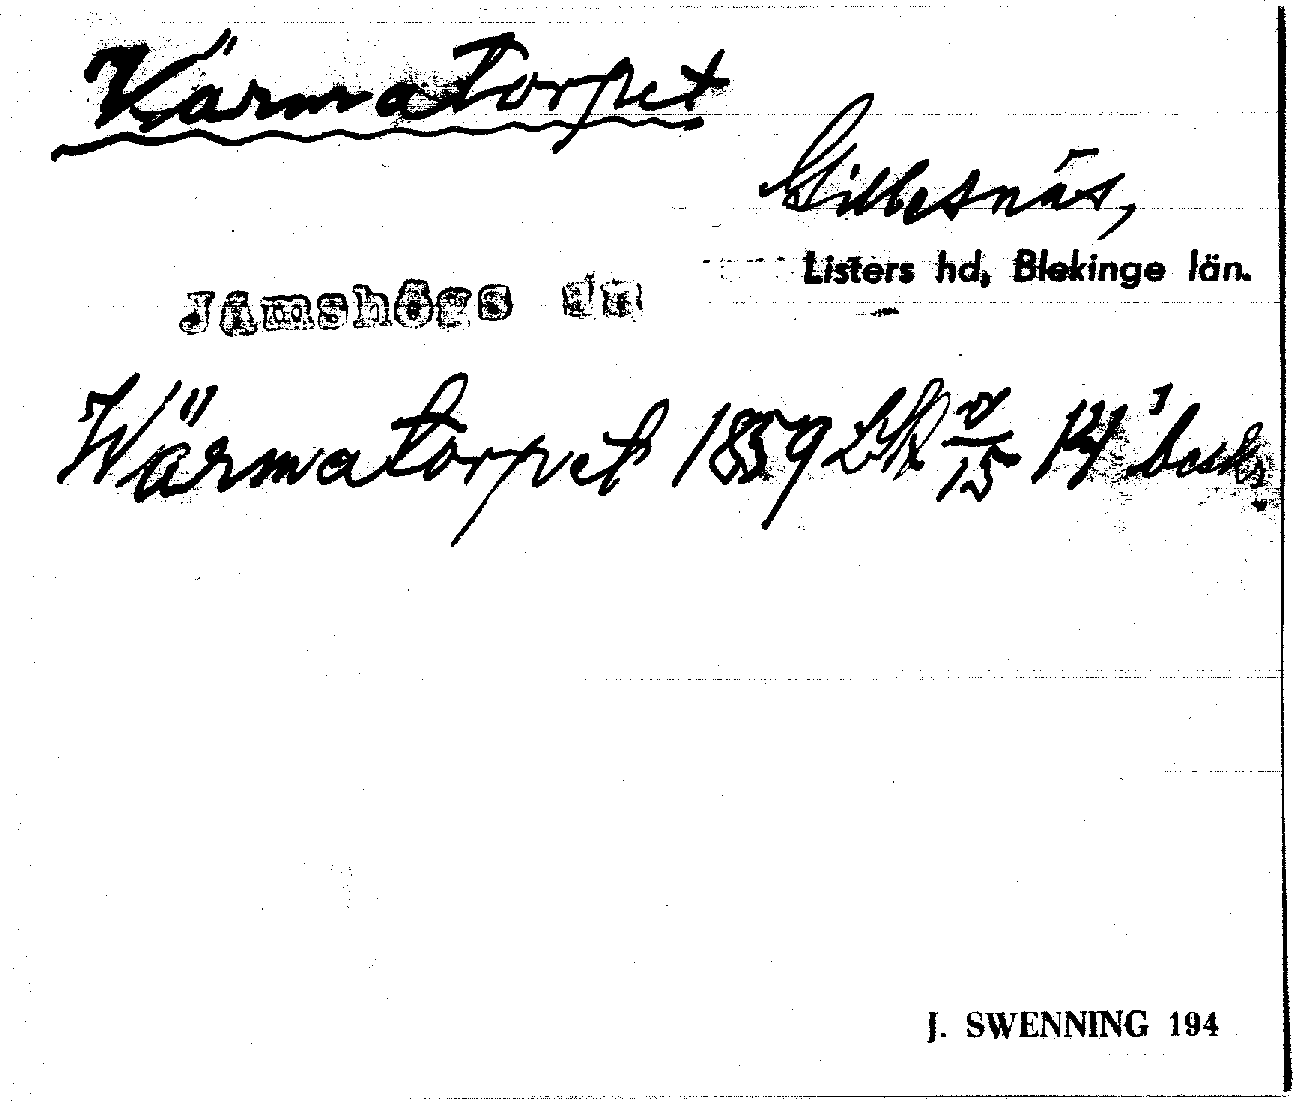 Värmatorpet
Gillesnäs,
Listers hd, Blekinge län.
Jämshögs sn
Wärmatorpet 1859 LSK
J. SWENNING 194